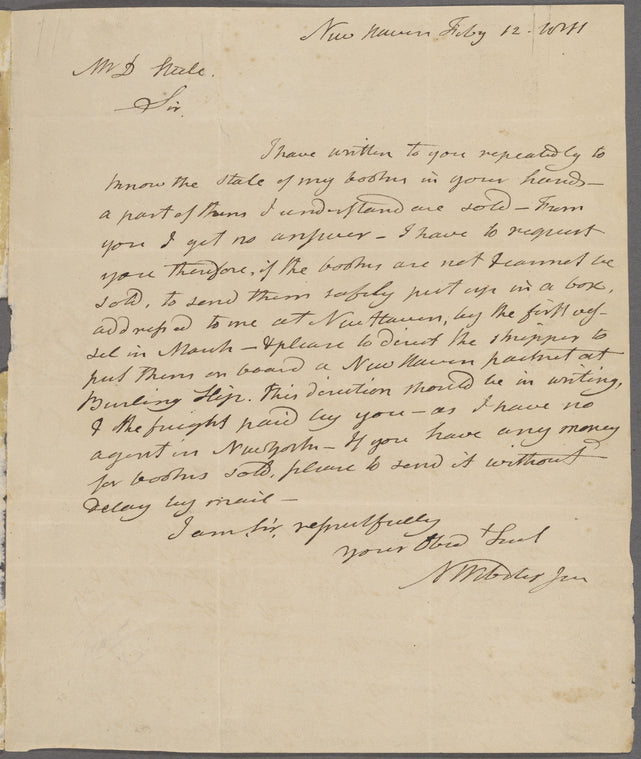 New Haven Feby 12. 1811
Mr D Steele.
Sir.
I have written to you repeatedly to
know the state of my books in your hands -
a part of them I understand are sold - From
you I get no answer - I have to request
you therefore, if the books are not & cannot be
sold, to send them safely put up in a box,
addressed to me at New Haven, by the first ves-
sel in March - & please to direct the shipper to
put them on board a New Haven packet at
Burling Slip. This direction should be in writing,
& the freight paid by you - as I have no
agent in New York - If you have any money
for books sold, please to send it without
delay by mail -
I am, Sir, respectfully
your Obedt Servt
N Webster Jun